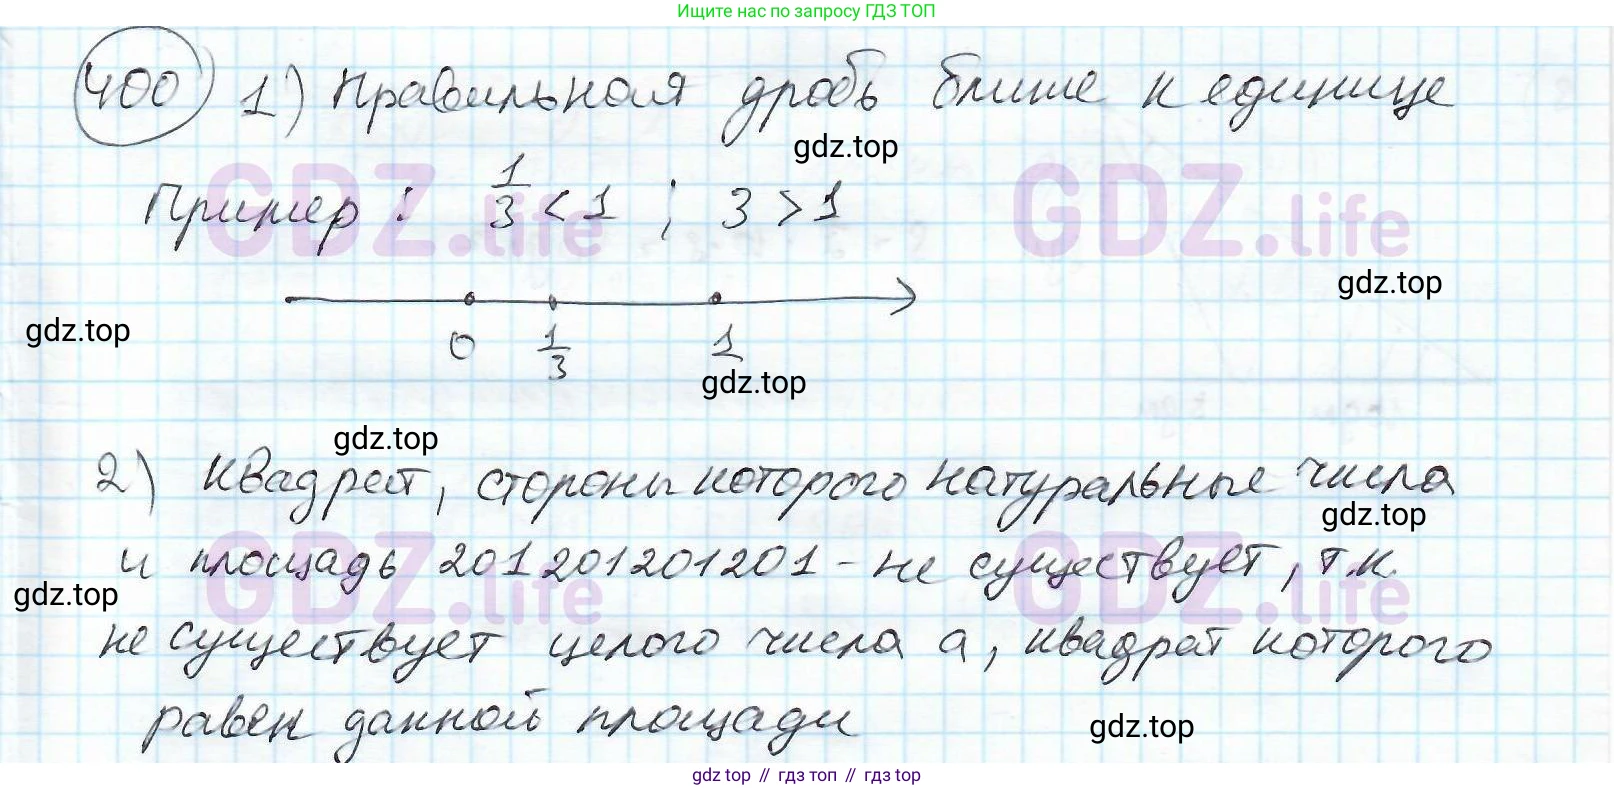 Ищите нас по запросу ГДЗ ТОП
400 1) Правильная дробь ближе к единице
gdz.top
Пример : 1/3 < 1 ; 3 > 1
GDZ.life GDZ.life
gdz.top
gdz.top
0 1/3 1
gdz.top
gdz.top
2) Квадрат, стороны которого натуральные числа
gdz.top
и площадь 201201201201 - не существует, т.к.
GDZ.life GDZ.life
gdz.top
не существует целого числа а, квадрат которого
равен данной площади
gdz.top
gdz top // гдз топ // гдз top